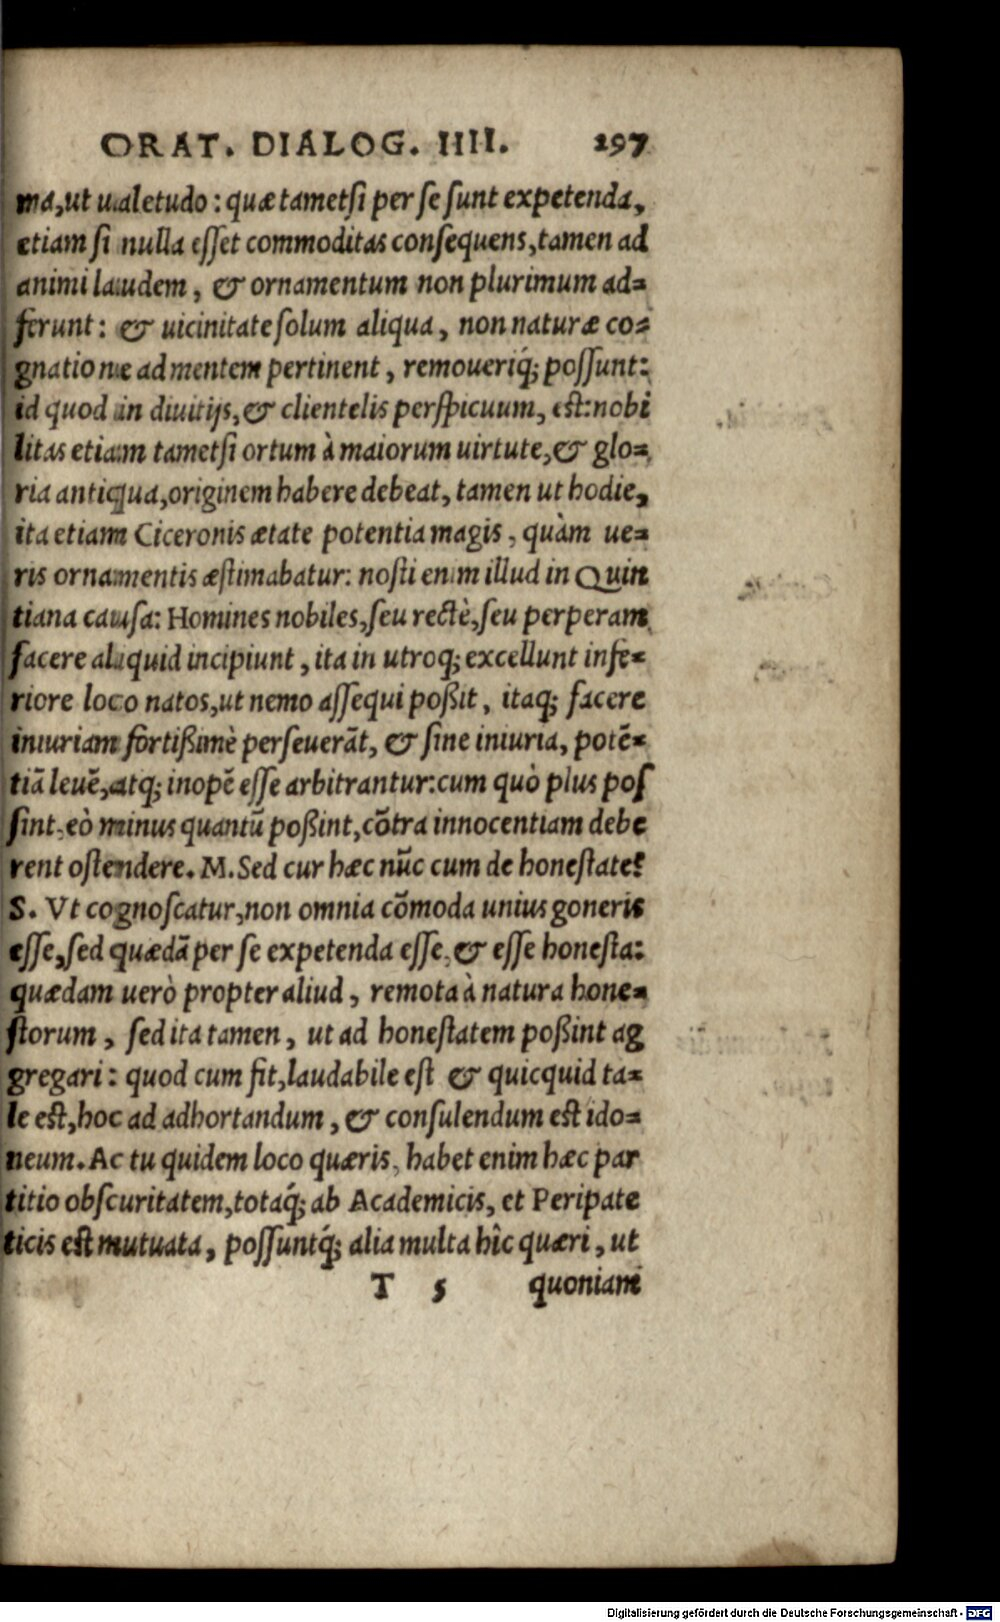 ORAT. DIALOG. IIII. 197
ma, ut ualetudo: quæ tametſi per ſe ſunt expetenda,
etiam ſi nulla eſſet commoditas conſequens, tamen ad
animi laudem, & ornamentum non plurimum ad=
ferunt: & uicinitate ſolum aliqua, non naturæ co=
gnatione ad mentem pertinent, remoueriq́; poſſunt:
id quod in diuitijs, & clientelis perſpicuum, eſt: nobi
litas etiam tametſi ortum à maiorum uirtute, & glo=
ria antiqua, originem habere debeat, tamen ut hodie,
ita etiam Ciceronis ætate potentia magis, quàm ue=
ris ornamentis æſtimabatur: noſti enim illud in Quin
tiana cauſa: Homines nobiles, ſeu rectè, ſeu perperam
facere aliquid incipiunt, ita in utroq; excellunt infe=
riore loco natos, ut nemo aſſequi poßit, itaq; facere
iniuriam fortißimè perſeuerãt, & ſine iniuria, potẽ=
tiã leuẽ, atq; inopẽ eſſe arbitrantur: cum quò plus poſ
ſint, eò minus quantũ poßint, cõtra innocentiam debe
rent oſtendere. M. Sed cur hæc nũc cum de honeſtate?
S. Vt cognoſcatur, non omnia cõmoda unius goneris
eſſe, ſed quædã per ſe expetenda eſſe, & eſſe honeſta:
quædam uerò propter aliud, remota à natura hone=
ſtorum, ſed ita tamen, ut ad honeſtatem poßint ag
gregari: quod cum fit, laudabile eſt & quicquid ta=
le eſt, hoc ad adhortandum, & conſulendum eſt ido=
neum. Ac tu quidem loco quæris, habet enim hæc par
titio obſcuritatem, totaq́; ab Academicis, et Peripate
ticis eſt mutuata, poſſuntq́; alia multa hîc quæri, ut
T 5 quoniam
Digitalisierung gefördert durch die Deutsche Forschungsgemeinschaft - DFG